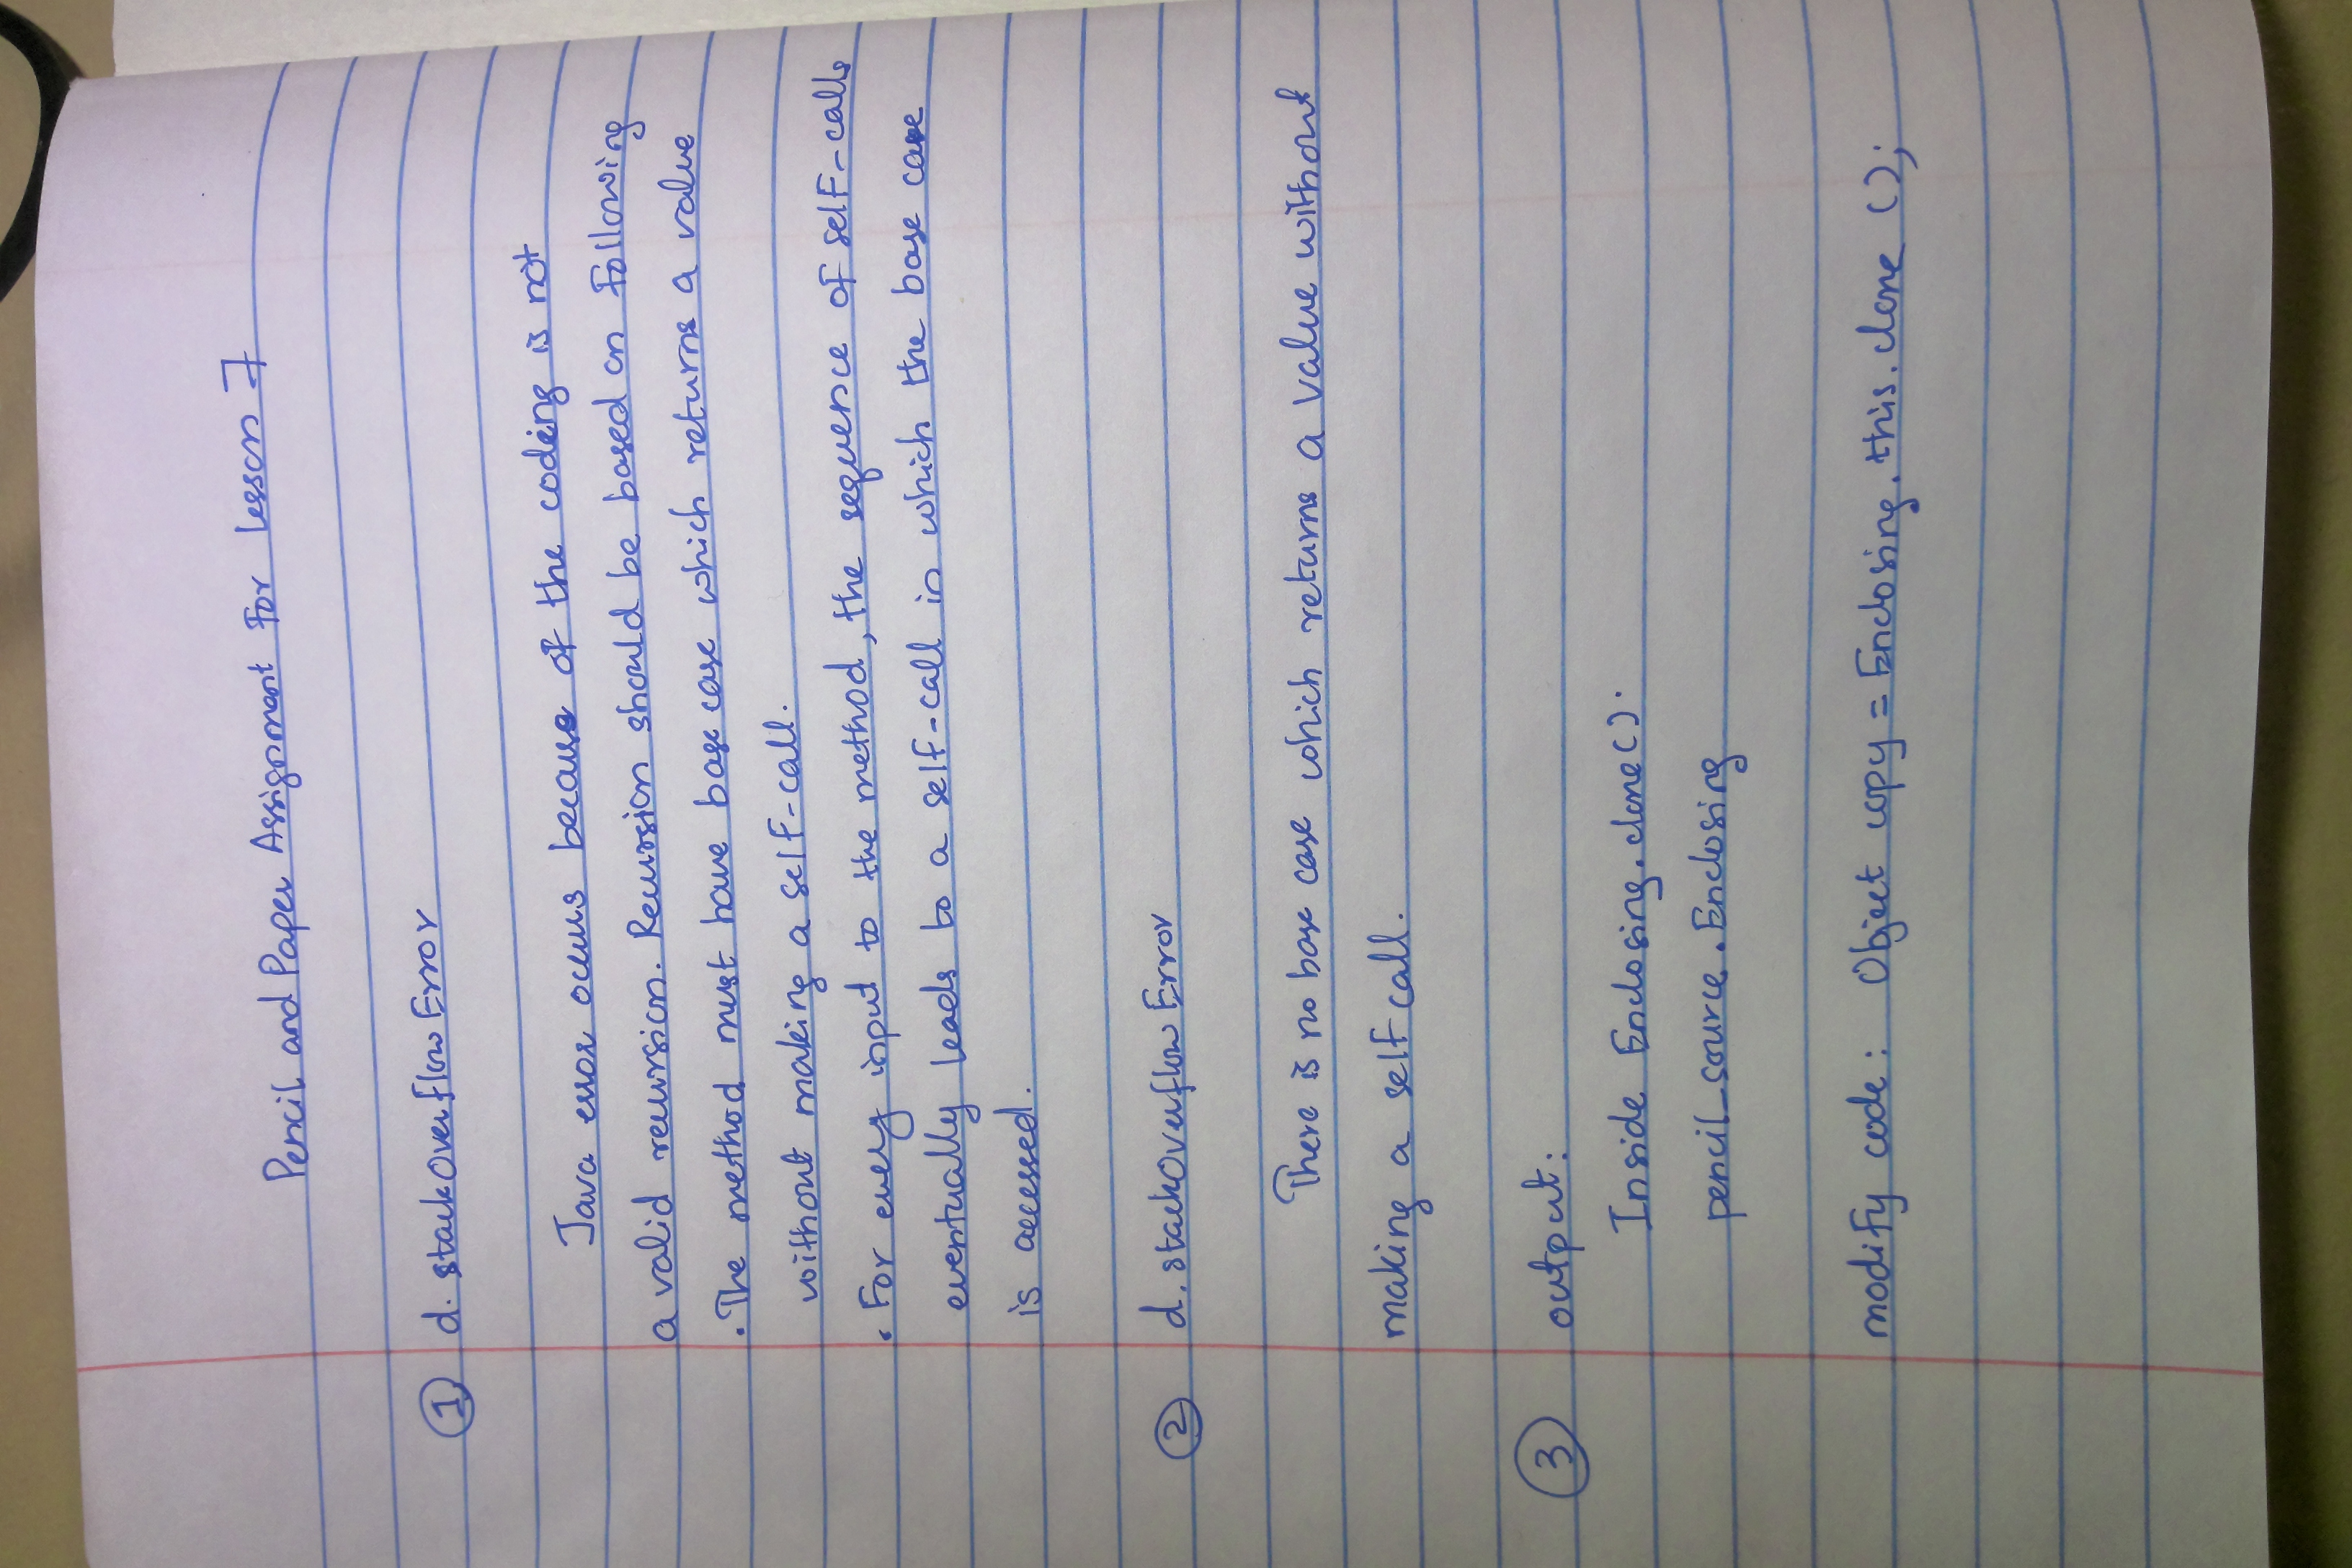 Pencil and Paper Assignment For Lesson 7
1 d. stackOverflowError
Java error occurs because of the coding is not
a valid recursion. Recursion should be based on Following
. The method must have base case which returns a value
without making a self-call.
. For every input to the method, the sequence of self-calls
eventually leads to a self-call in which the base case
is accessed.
2 d. stackOverflowError
There is no base case which returns a value without
making a self call.
3 output:
Inside Enclosing.clone().
pencil_source.Enclosing
modify code: Object copy = Enclosing.this.clone ();